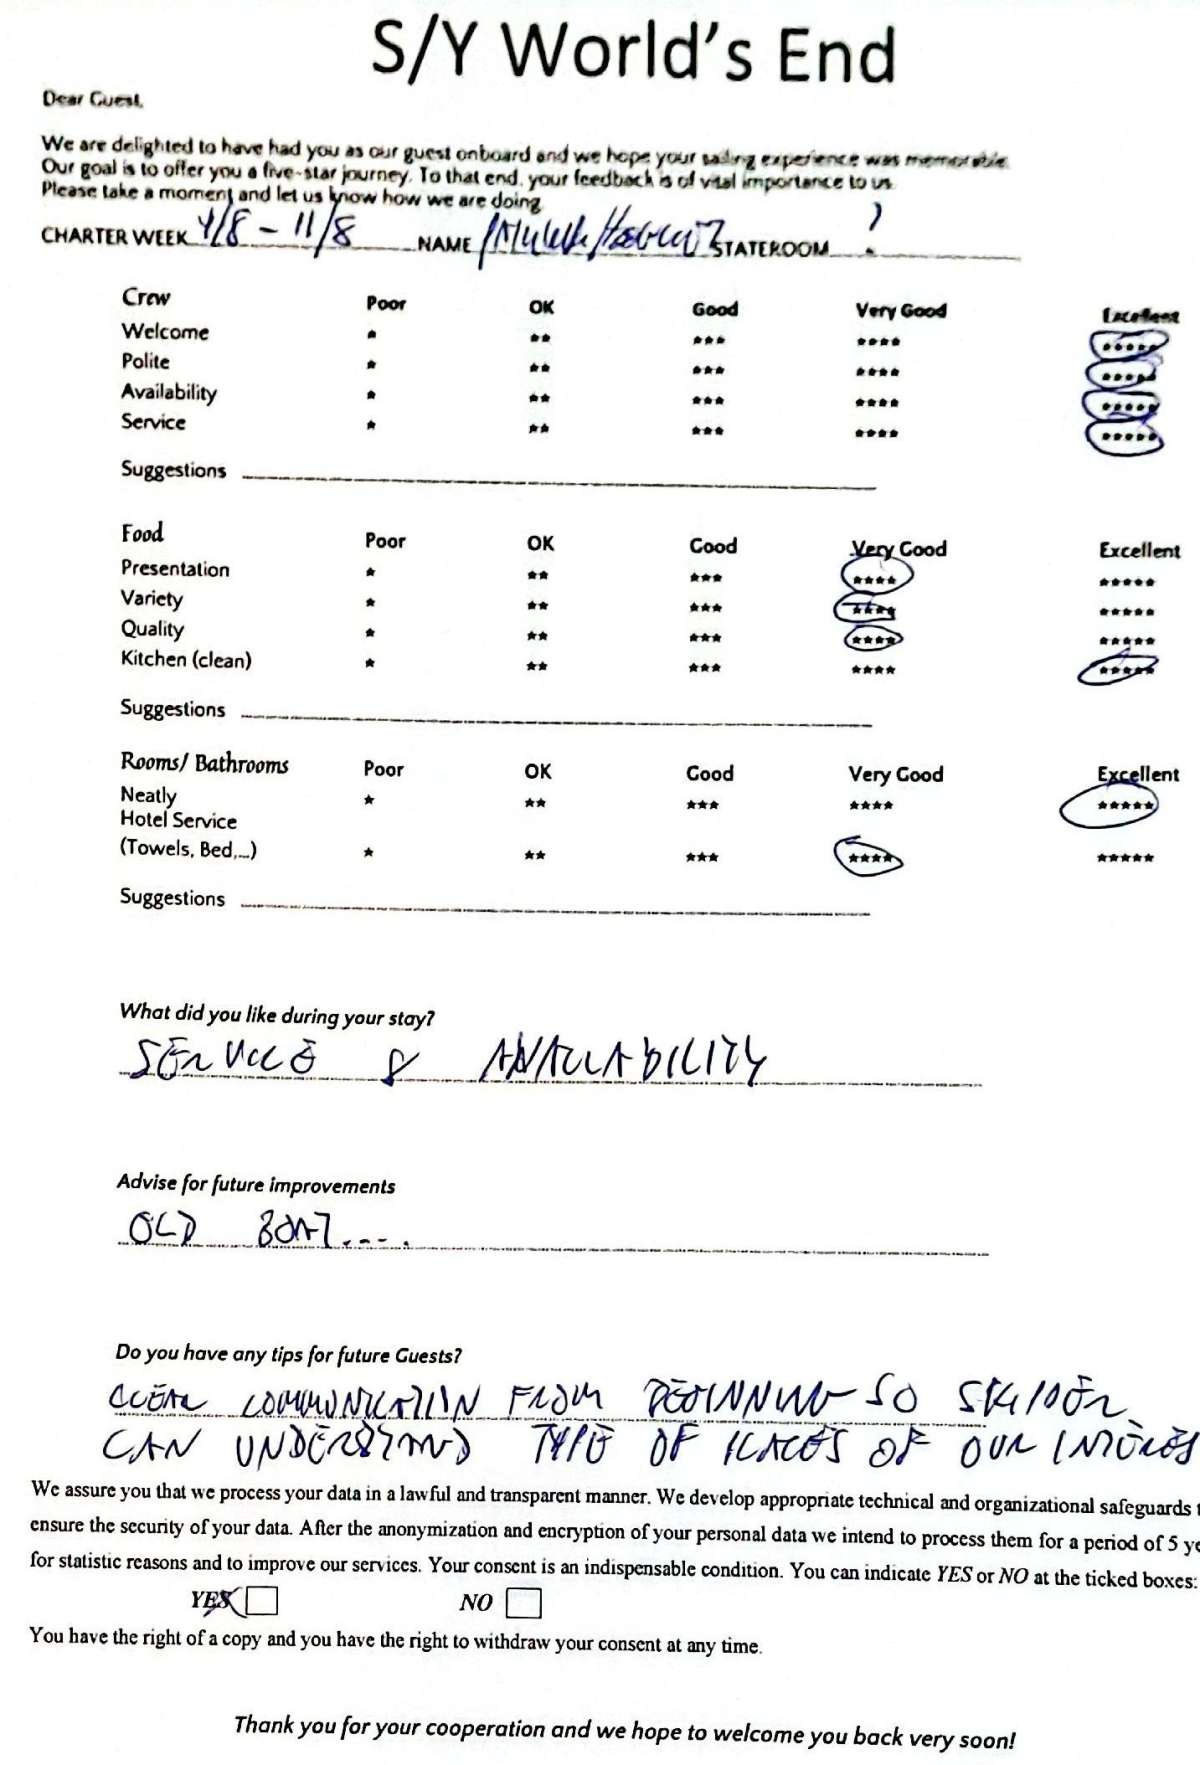 S/Y World's End
Dear Guest,
We are delighted to have had you as our guest onboard and we hope your sailing experience was memorable.
Our goal is to offer you a five-star journey. To that end, your feedback is of vital importance to us.
Please take a moment and let us know how we are doing.
CHARTER WEEK 4/8 - 11/8 NAME STATEROOM ?
Crew Poor OK Good Very Good Excellent
Welcome * ** *** **** *****
Polite * ** *** **** *****
Availability * ** *** **** *****
Service * ** *** **** *****
Suggestions
Food Poor OK Good Very Good Excellent
Presentation * ** *** **** *****
Variety * ** *** **** *****
Quality * ** *** **** *****
Kitchen (clean) * ** *** **** *****
Suggestions
Rooms/ Bathrooms Poor OK Good Very Good Excellent
Neatly * ** *** **** *****
Hotel Service
(Towels, Bed,...) * ** *** **** *****
Suggestions
What did you like during your stay?
SERVICE & AVAILABILITY
Advise for future improvements
OLD BOAT....
Do you have any tips for future Guests?
CLEAR COMMUNICATION FROM BEGINNING SO SKIPPER
CAN UNDERSTAND TYPE OF PLACES OF OUR INTERES
We assure you that we process your data in a lawful and transparent manner. We develop appropriate technical and organizational safeguards t
ensure the security of your data. After the anonymization and encryption of your personal data we intend to process them for a period of 5 ye
for statistic reasons and to improve our services. Your consent is an indispensable condition. You can indicate YES or NO at the ticked boxes:
YES NO
You have the right of a copy and you have the right to withdraw your consent at any time.
Thank you for your cooperation and we hope to welcome you back very soon!